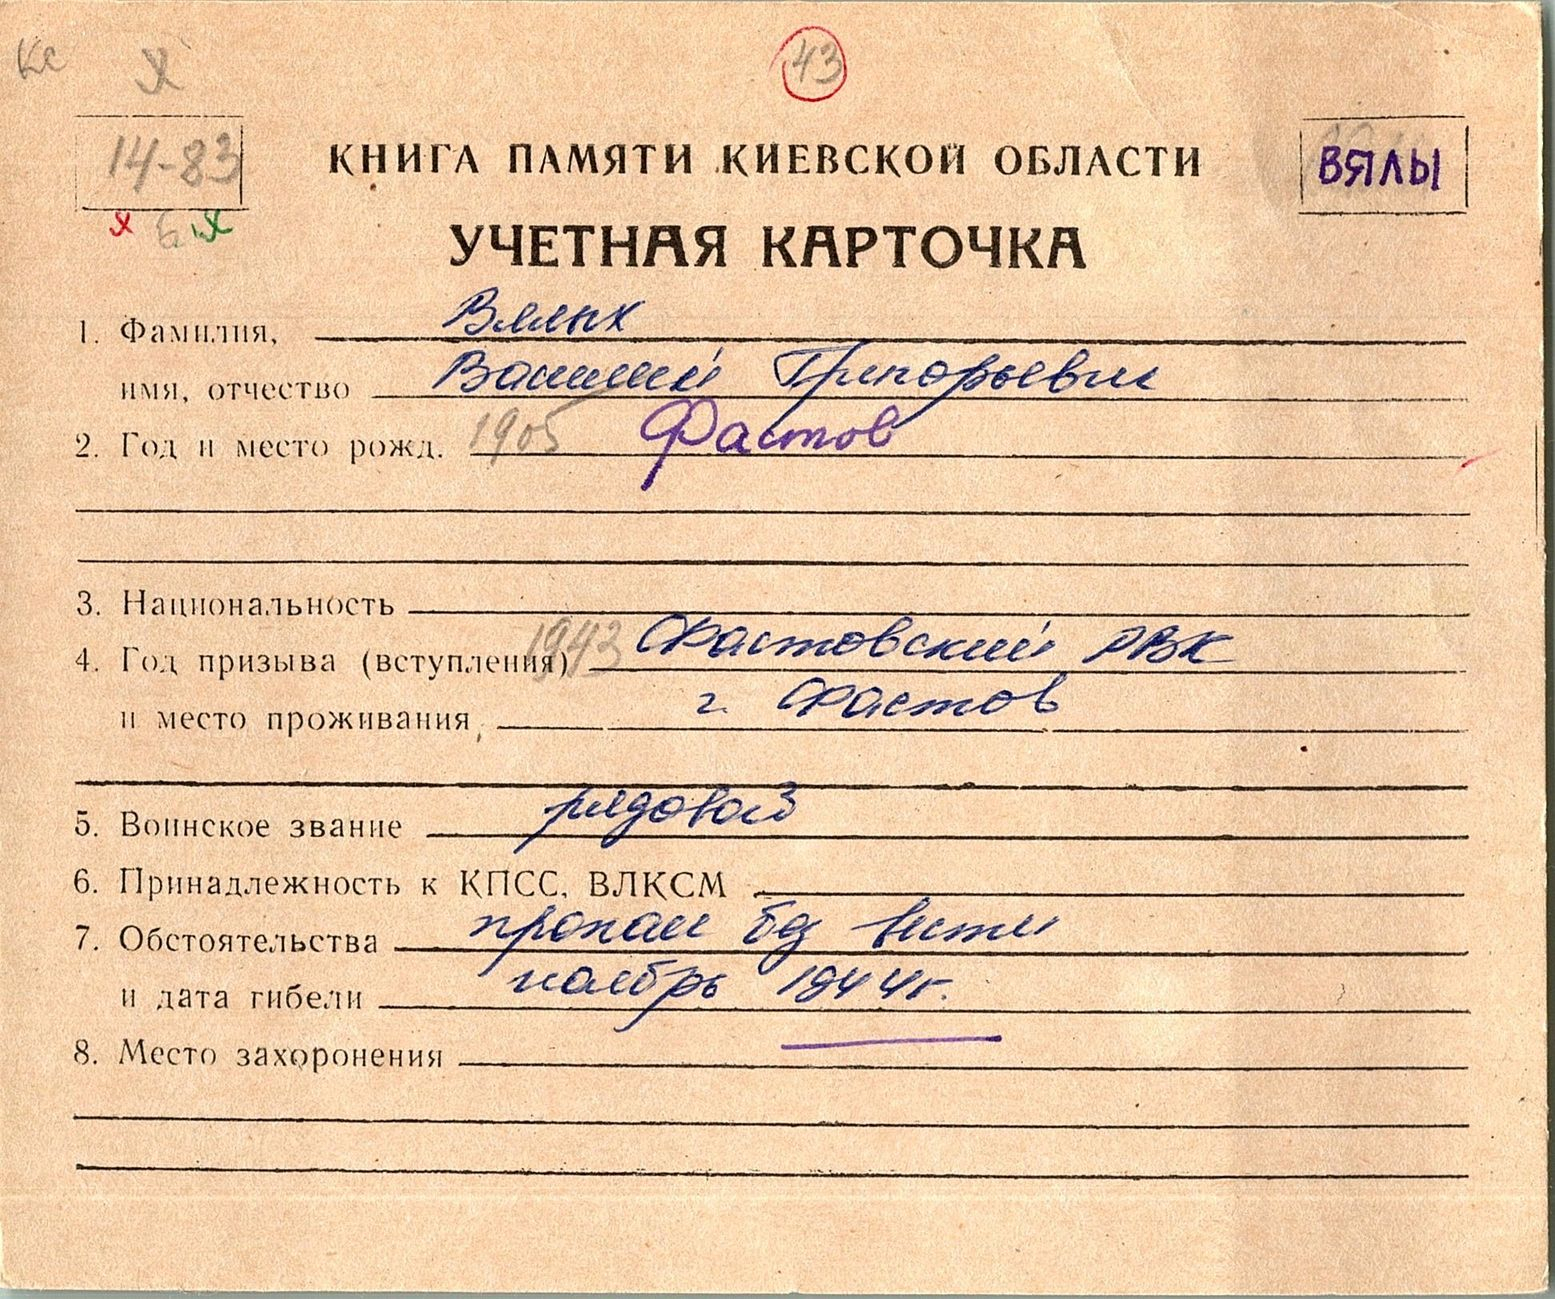 Кс
43
14-83
КНИГА ПАМЯТИ КИЕВСКОЙ ОБЛАСТИ
ВЯЛЫ
УЧЕТНАЯ КАРТОЧКА
1. Фамилия, Вялых
имя, отчество Василий Григорьевич
2. Год и место рожд. 1905 Фастов
3. Национальность
4. Год призыва (вступления) 1943 Фастовский РВК
и место проживания г. Фастов
5. Воинское звание рядовой
6. Принадлежность к КПСС, ВЛКСМ
7. Обстоятельства пропал без вести
и дата гибели ноябрь 1944г.
8. Место захоронения